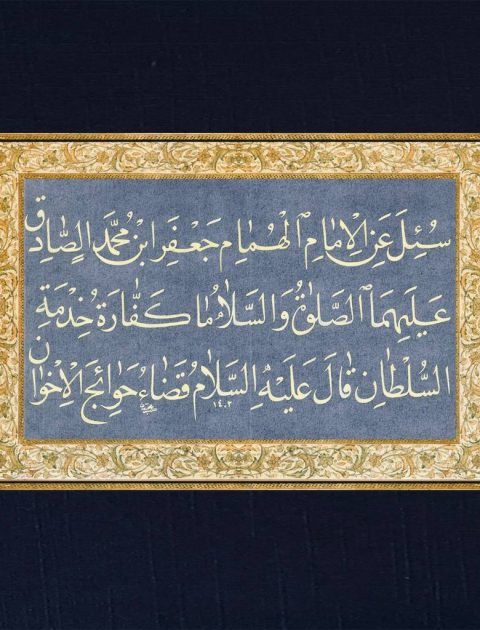 سُئِلَ عَنِ الْاِمٰامِ الْهُمٰامِ جَعْفَرَ ابْنِ مُحَمَّدٍ الصّٰادِقِ
عَلَيْهِمَا الصَّلوٰةُ وَالسَّلٰامُ مٰا كَفّٰارَةُ خِدْمَةِ
السُّلْطٰانِ قٰالَ عَلَيْهِ السَّلٰامُ قَضٰاءُ حَوٰائِجِ الْاِخْوٰانِ
١٤٠٢